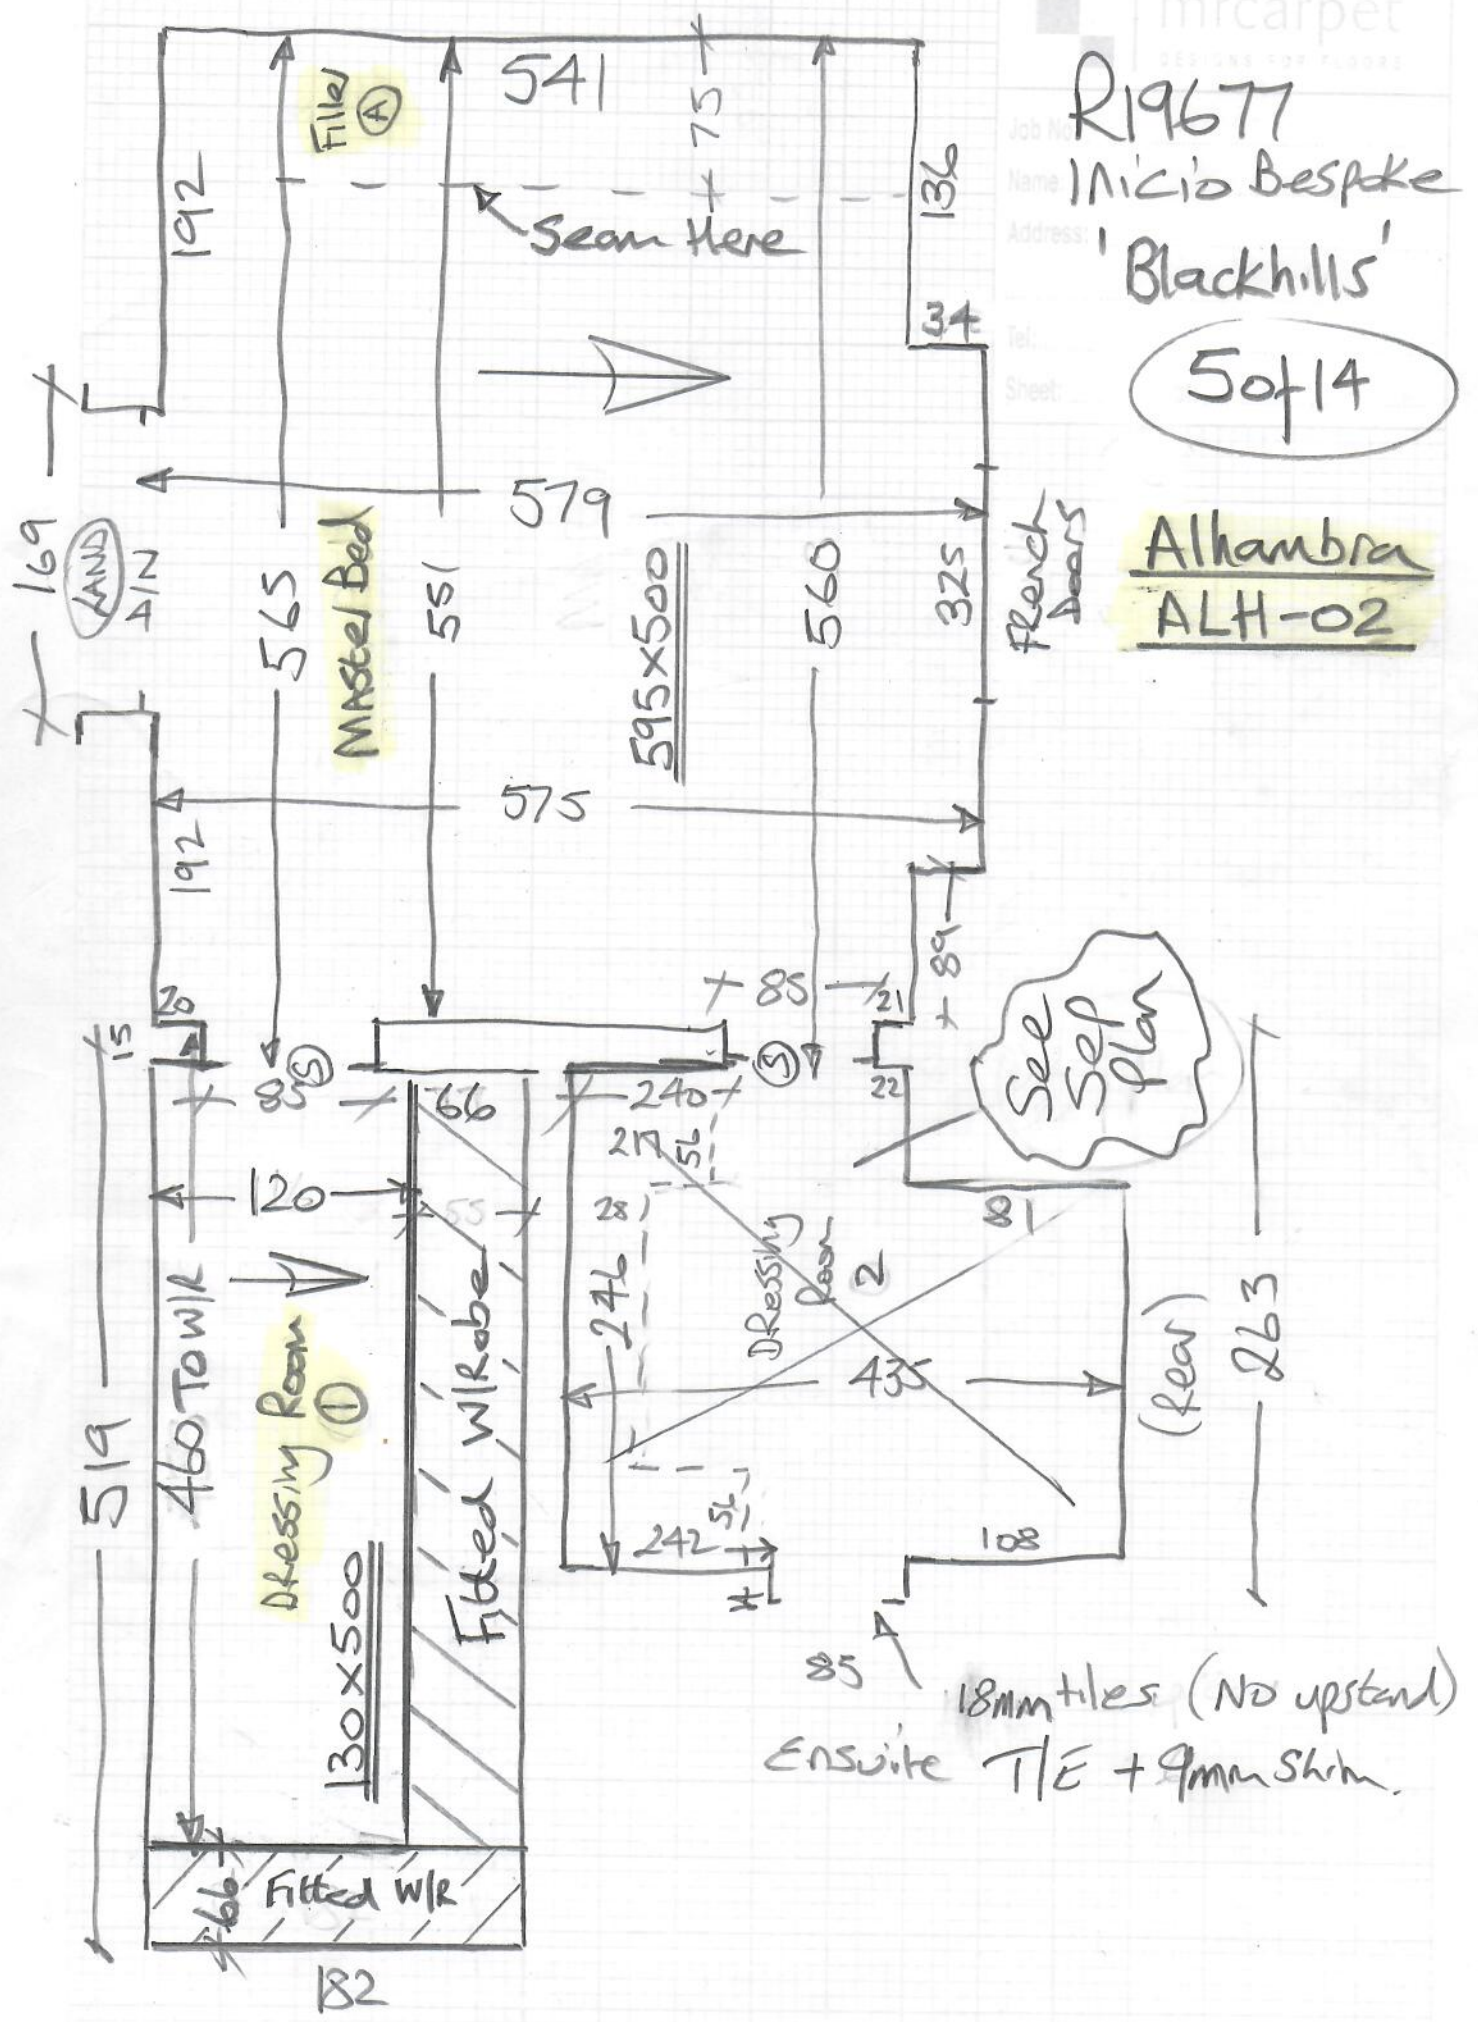 mrcarpet
DESIGNS FOR FLOORS
Job No
R19677
Name
Inicio Bespoke
Address:
'Blackhills'
Tel:
Sheet:
5 of 14
Alhambra
ALH-02
541
75
Filler
A
192
136
Seam Here
34
579
169
LAND
565
Master Bed
551
595x500
560
325
French
Doors
575
192
89
85
21
20
15
S
S
22
85
66
240
217
56
See
Sep
Plan
120
55
28
81
246
Dressing
Room
2
435
(Rear)
263
519
460 To W/R
Dressing Room
1
130x500
Fitted W/Robe
242
56
108
85
18mm tiles (No upstand)
Ensuite T/E + 9mm Shim.
66
Fitted W/R
182